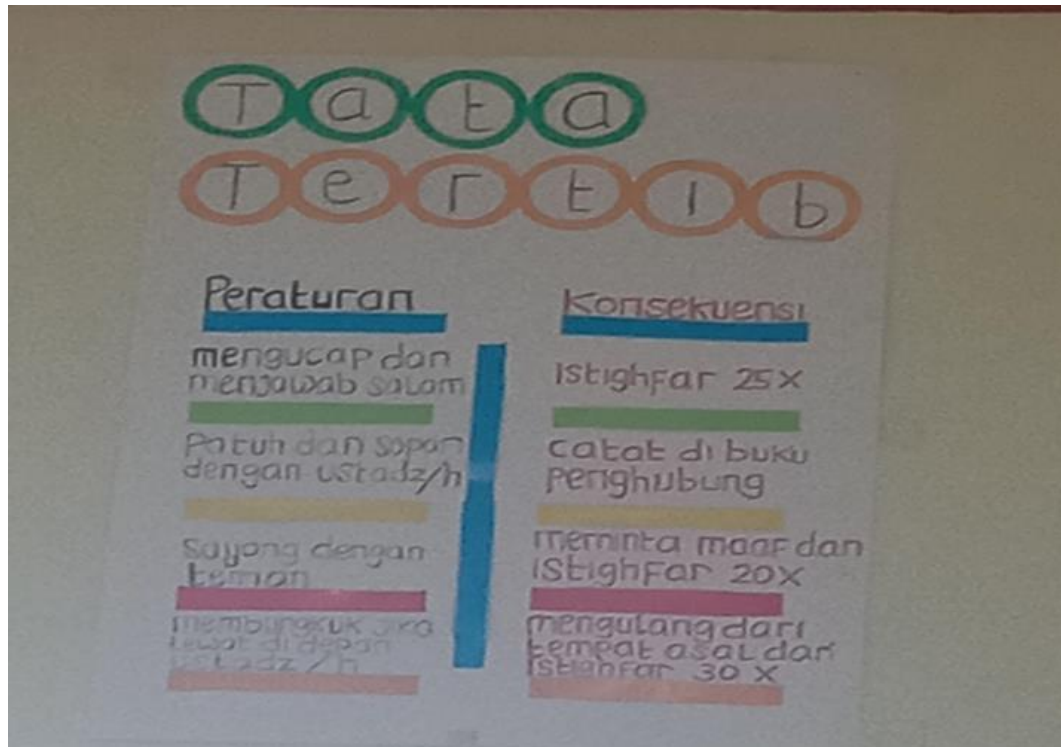 Tata
Tertib
Peraturan
mengucap dan
menjawab salam
Patuh dan sopan
dengan ustadz/h
Sayang dengan
teman
membungkuk jika
lewat di depan
ustadz/h
Konsekuensi
istighfar 25x
catat di buku
penghubung
meminta maaf dan
istighfar 20x
mengulang dari
tempat asal dan
istighfar 30 x